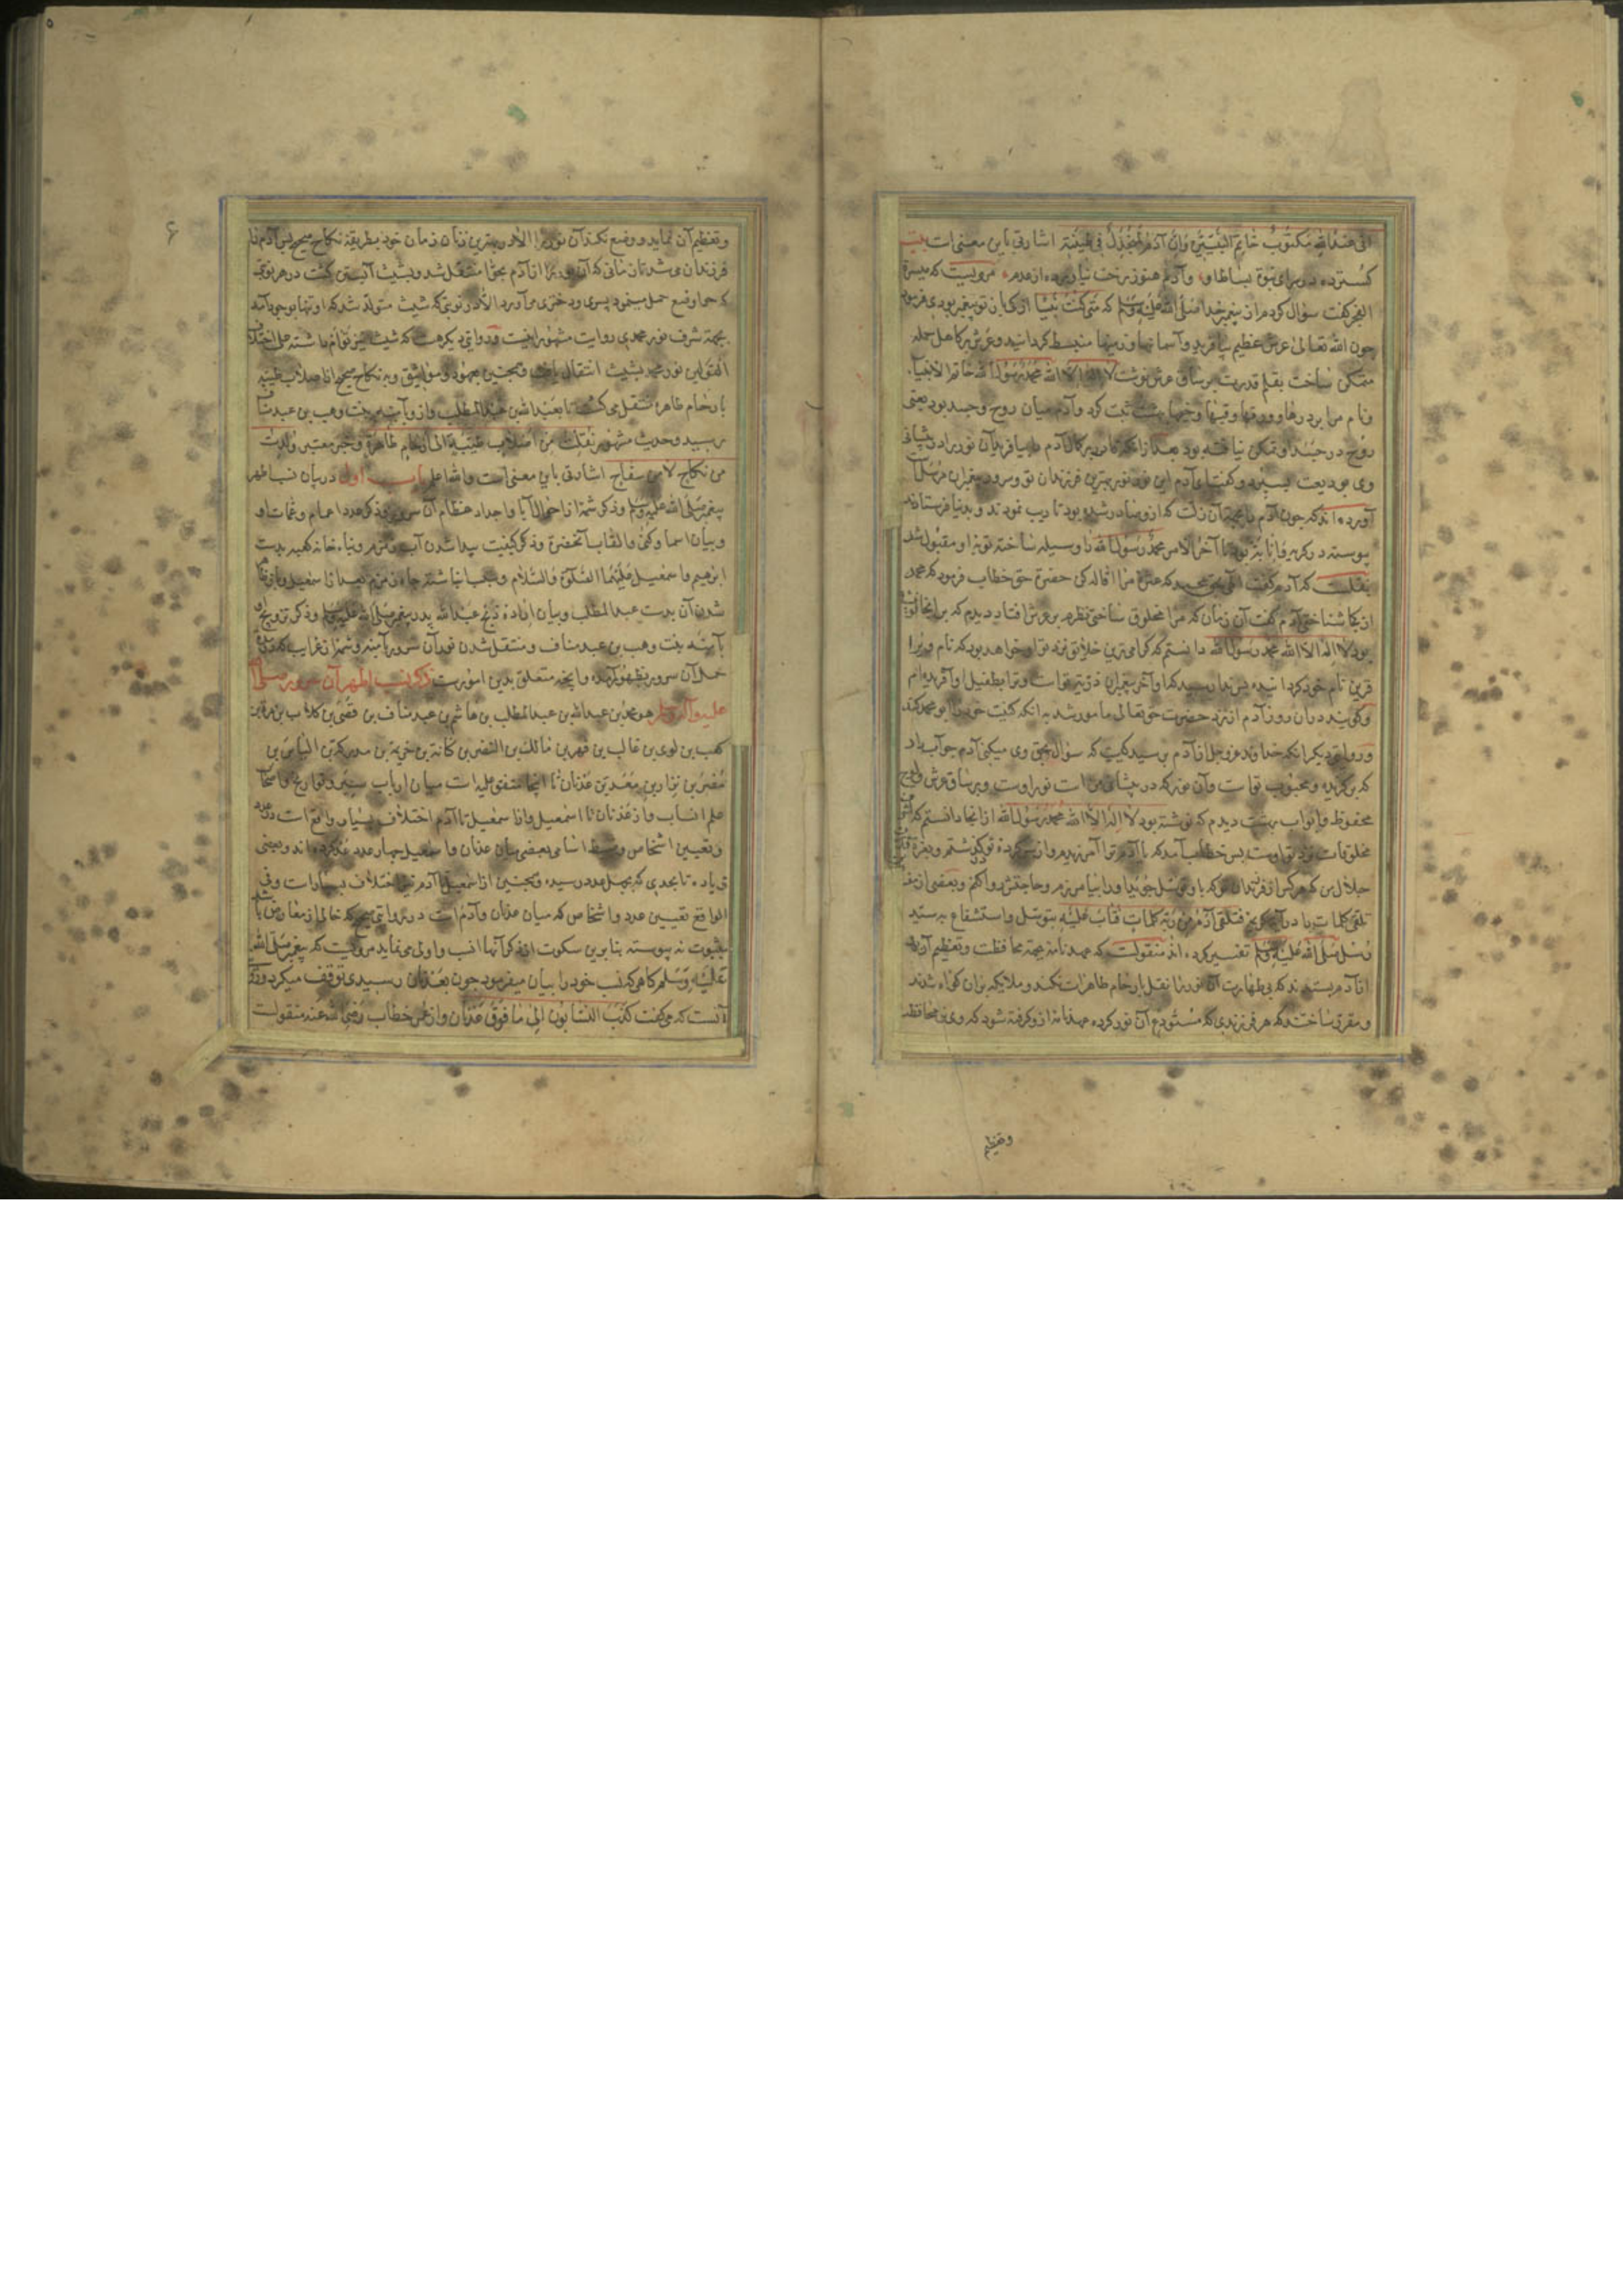 انی عندالله مکتوب خاتم النبیین وان آدم لمنجدل فی طینته اشارتی باین معنی است بیت
کسترده در سرای نبوة بساط او وآدم هنوز رخت نیاورده از عدم مرویست که میسرة
الفجر کفت سؤال کردم از پیغمبر خدا صلی الله علیه وسلم که متی کنت نبیا از کی باز تو پیغمبر بودی فرمود
چون الله تعالی عرش عظیم بیافرید وآسمانها وزمینها منبسط کردانید وعرش بر کاهل حمله
متمکن ساخت بقلم قدرت بر ساق عرش نوشت لا اله الا الله محمد رسول الله خاتم الانبیآء
ونام مرا بر درها وورقها وقبها وخیمها بهشت ثبت کرد وآدم میان روح وجسد بود یعنی
روح در جسد او تمکن نیافته بود بعد از انکه آدم را بیافرید آن نور را در پیشانی
وی بودیعت بسپرد وکفت ای آدم این نور نور بهترین فرزندان تو وسرور پیغمبران مرسل است
آورده اند که چون آدم را بجهة آن زلت که ازو صادر شده بود تادیب نمودند وبدنیا فرستادند
پیوسته در کریه وانابت بود تا آخر الامر محمد رسول الله را وسیله ساخته توبه او مقبول شد
نقلست که آدم کفت الهی بحق محمد که عثرة مرا اقاله کن حضرة حق خطاب فرمود که محمد
از کجا شناختی آدم کفت آن زمان که مرا مخلوق ساختی نظرم بر عرش افتاد دیدم که بر انجا نوشته
بود لا اله الا الله محمد رسول الله دانستم که کرامی ترین خلایق نزد تو او خواهد بود که نام ویرا
قرین نام خود کردانیده پس ندا رسید که او آخر پیغمبران ذریة تو است وترا بطفیل او آفریده ام
وکویند در ان روز آدم از نزد حضرت حق تعالی مامور شد به انکه کنیت خود را ابو محمد کند
وروایتی دیکر انکه خداوند عز وجل از آدم پرسید کیست که سؤال بحق وی میکنی آدم جواب داد
که برکزیده ومحبوب تو است وآن نور که در پیشانی من است نور اوست وبر ساق عرش ولوح
محفوظ وابواب بهشت دیدم که نوشته بود لا اله الا الله محمد رسول الله از انجا دانستم که
مخلوقات نزد تو اوست پس خطاب آمد که یا آدم ترا آمرزیدم واز کرده تو کذشتم وبعزة
جلال من که هر کس از فرزندان تو که باو توسل جوید او را بیامرزم وحاجتش روا کنم وبعضی از
تلقی کلمات را در آیه کریمه فتلقی آدم من ربه کلمات فتاب علیه بتوسل واستشفاع به سید
رسل صلی الله علیه وسلم تفسیر کرده اند منقولست که عهدنامه بجهة محافظت وتعظیم آن نور
از آدم بستدند که بی طهارت آن نور را نقل بارحام طاهرات نکند وملایکه بران کواه شدند
ومقرر ساختند که هر فرزندی که مستودع آن نور کردد عهدنامه ازو کرفته شود که وی نیز محافظت
وتعظیم
۶
وتعظیم آن نماید ووضع نکند آن نور را الا در بهترین زنان زمان خود بطریقه نکاح صحیح پس آدم را
فرزندان می شد تا زمانی که آن نور از آدم بحوا منتقل شد وبشیث آبستن کشت در هر نوبتی
که حوا وضع حمل مینمود پسری ودختری می آورد الا در نوبتی که شیث متولد شد که او تنها بوجود آمد
بجهة شرف نور محمدی روایت مشهور اینست ودر روایتی دیکر هست که شیث نیز توأم داشته علی اختلاف
القولین نور محمد بشیث انتقال یافت وهمچنین بعهود ومواثیق وبه نکاح صحیح از اصلاب طیبه
بارحام طاهره منتقل می کشت تا بعبدالله بن عبدالمطلب وازو بآمنه بنت وهب بن عبد مناف
رسید وحدیث مشهور نقلت من اصلاب طیبة الی ارحام طاهرة وخبر معتبر ولدت
من نکاح لا من سفاح اشارتی باین معنی است والله اعلم باب اول در بیان نسب اطهر
پیغمبر صلی الله علیه وسلم وذکر شمه از احوال آبا واجداد عظام آن سرور وذکر عدد اعمام وعمات او
وبیان اسما وکنی والقاب آنحضرة وذکر کیفیت پیدا شدن آب زمزم وبناء خانه کعبه بدست
ابرهیم واسمعیل علیهما الصلوة والسلام وسبب انباشته چاه زمزم بعد از اسمعیل وباز
شدن آن بدست عبدالمطلب وبیان اراده ذبح عبدالله پدر پیغمبر صلی الله علیه وسلم وذکر تزویج او
بآمنه بنت وهب بن عبد مناف ومنتقل شدن نور آن سرور بآمنه وشمه از غرایب که در مدة
حمل آن سرور بظهور آمده وانچه متعلق بدین امورست ذکر نسب اطهر آن سرور صلی الله
علیه وآله وسلم هو محمد بن عبدالله بن عبدالمطلب بن هاشم بن عبد مناف بن قصی بن کلاب بن مرة بن
کعب بن لوی بن غالب بن فهر بن مالک بن النضر بن کنانة بن خزیمة بن مدرکة بن الیاس بن
مضر بن نزار بن معد بن عدنان تا اینجا متفق علیه است میان ارباب سیر وتواریخ واصحاب
علم انساب واز عدنان تا اسمعیل واز اسمعیل تا آدم اختلاف بسیار واقع است در عدد
وتعیین اشخاص وضبط اسامی بعضی میان عدنان واسمعیل چهار عدد ذکر کرده اند وبعضی
زیاده تا بحدی که بچهل عدد رسیده وهمچنین از اسمعیل تا آدم نیز اختلاف بسیار است وفی
الواقع تعیین عدد واشخاص که میان عدنان وآدم است در روایتی صحیح که خالی از معارض باشد
بثبوت نه پیوسته بنا برین سکوت از ذکر آنها انسب واولی می نماید مرویست که پیغمبر صلی الله
علیه وسلم کاهی که نسب خود را بیان میفرمود چون بعدنان رسیدی توقف میکرد
آنست که می کفت کذب النسابون الی ما فوق عدنان واز عمر خطاب رضی الله عنه منقولست